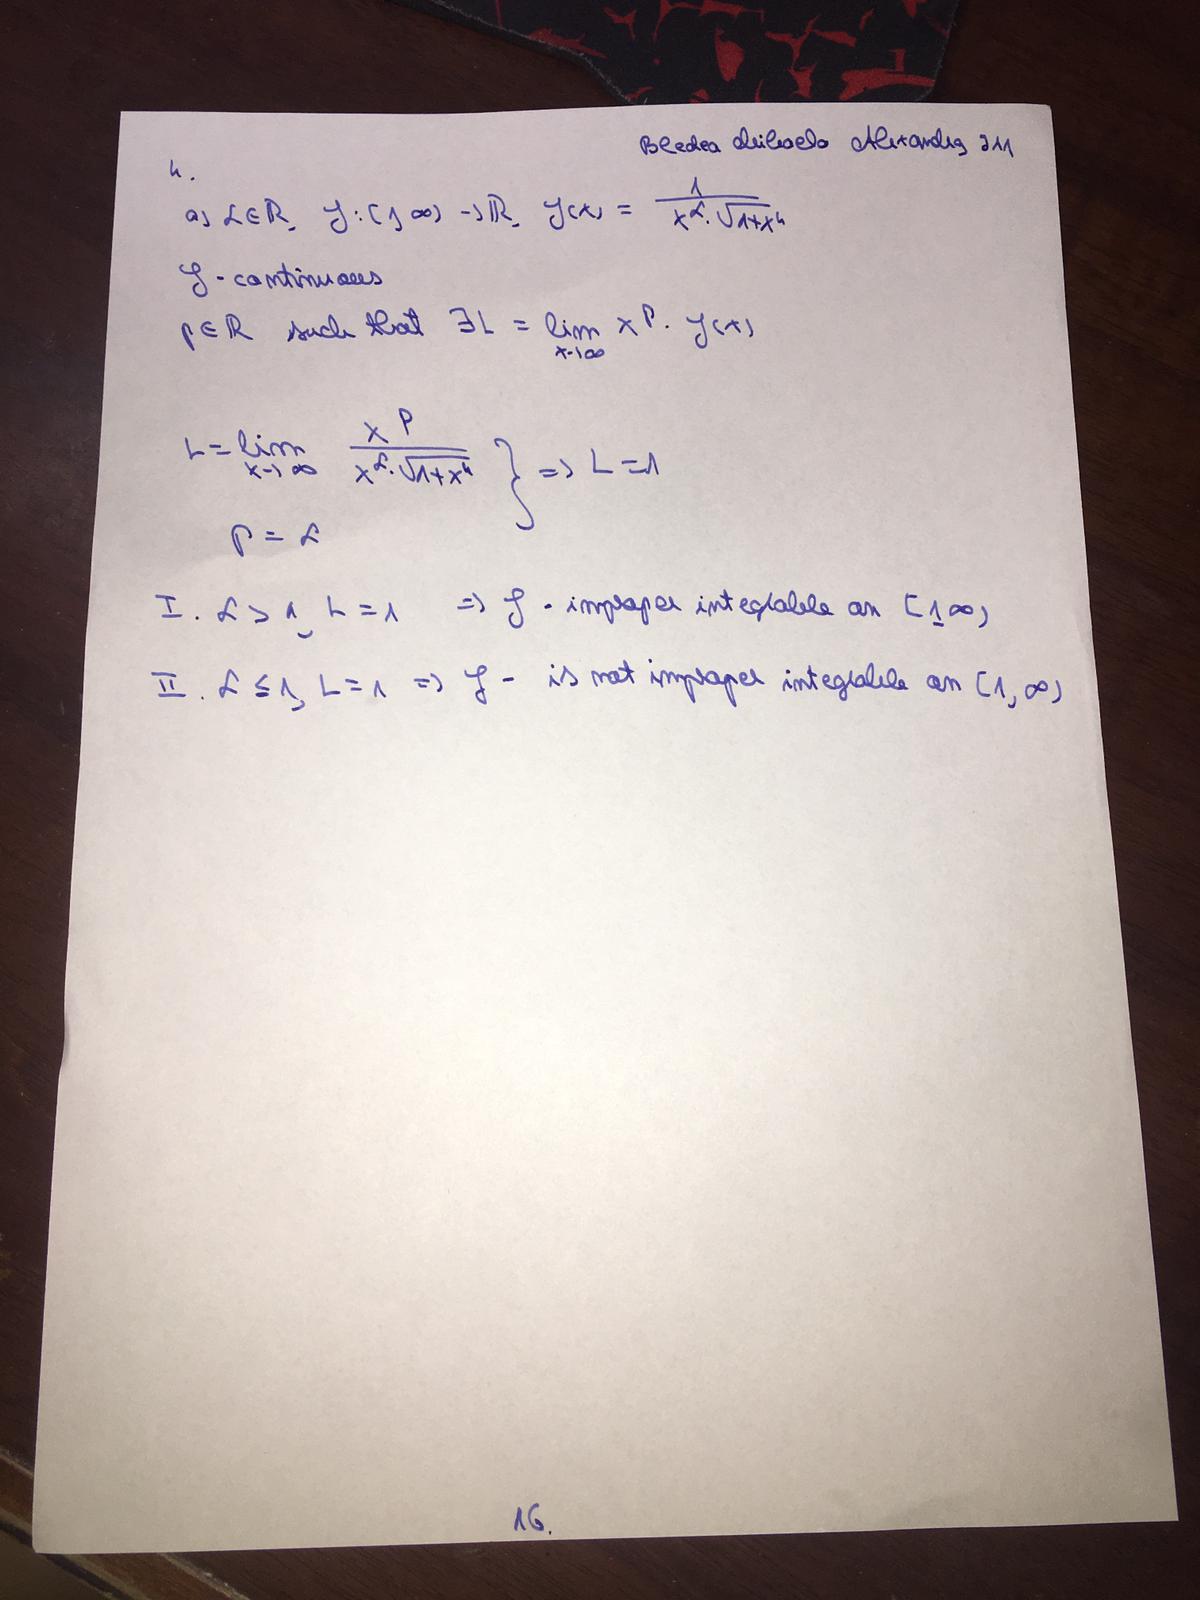 Bledea Mihaela Alexandra 911
4.
a) α∈R, f:[1,∞) → R, f(x) = 1 / (x^α · √(1+x⁴))
f - continuous
p∈R such that ∃ L = lim x→∞ x^p · f(x)
L = lim x→∞ x^p / (x^α · √(1+x⁴)) } => L = 1
p = α
I. α > 1, L = 1 => f - improper integrable on [1,∞)
II. α ≤ 1, L = 1 => f - is not improper integrable on [1,∞)
16.